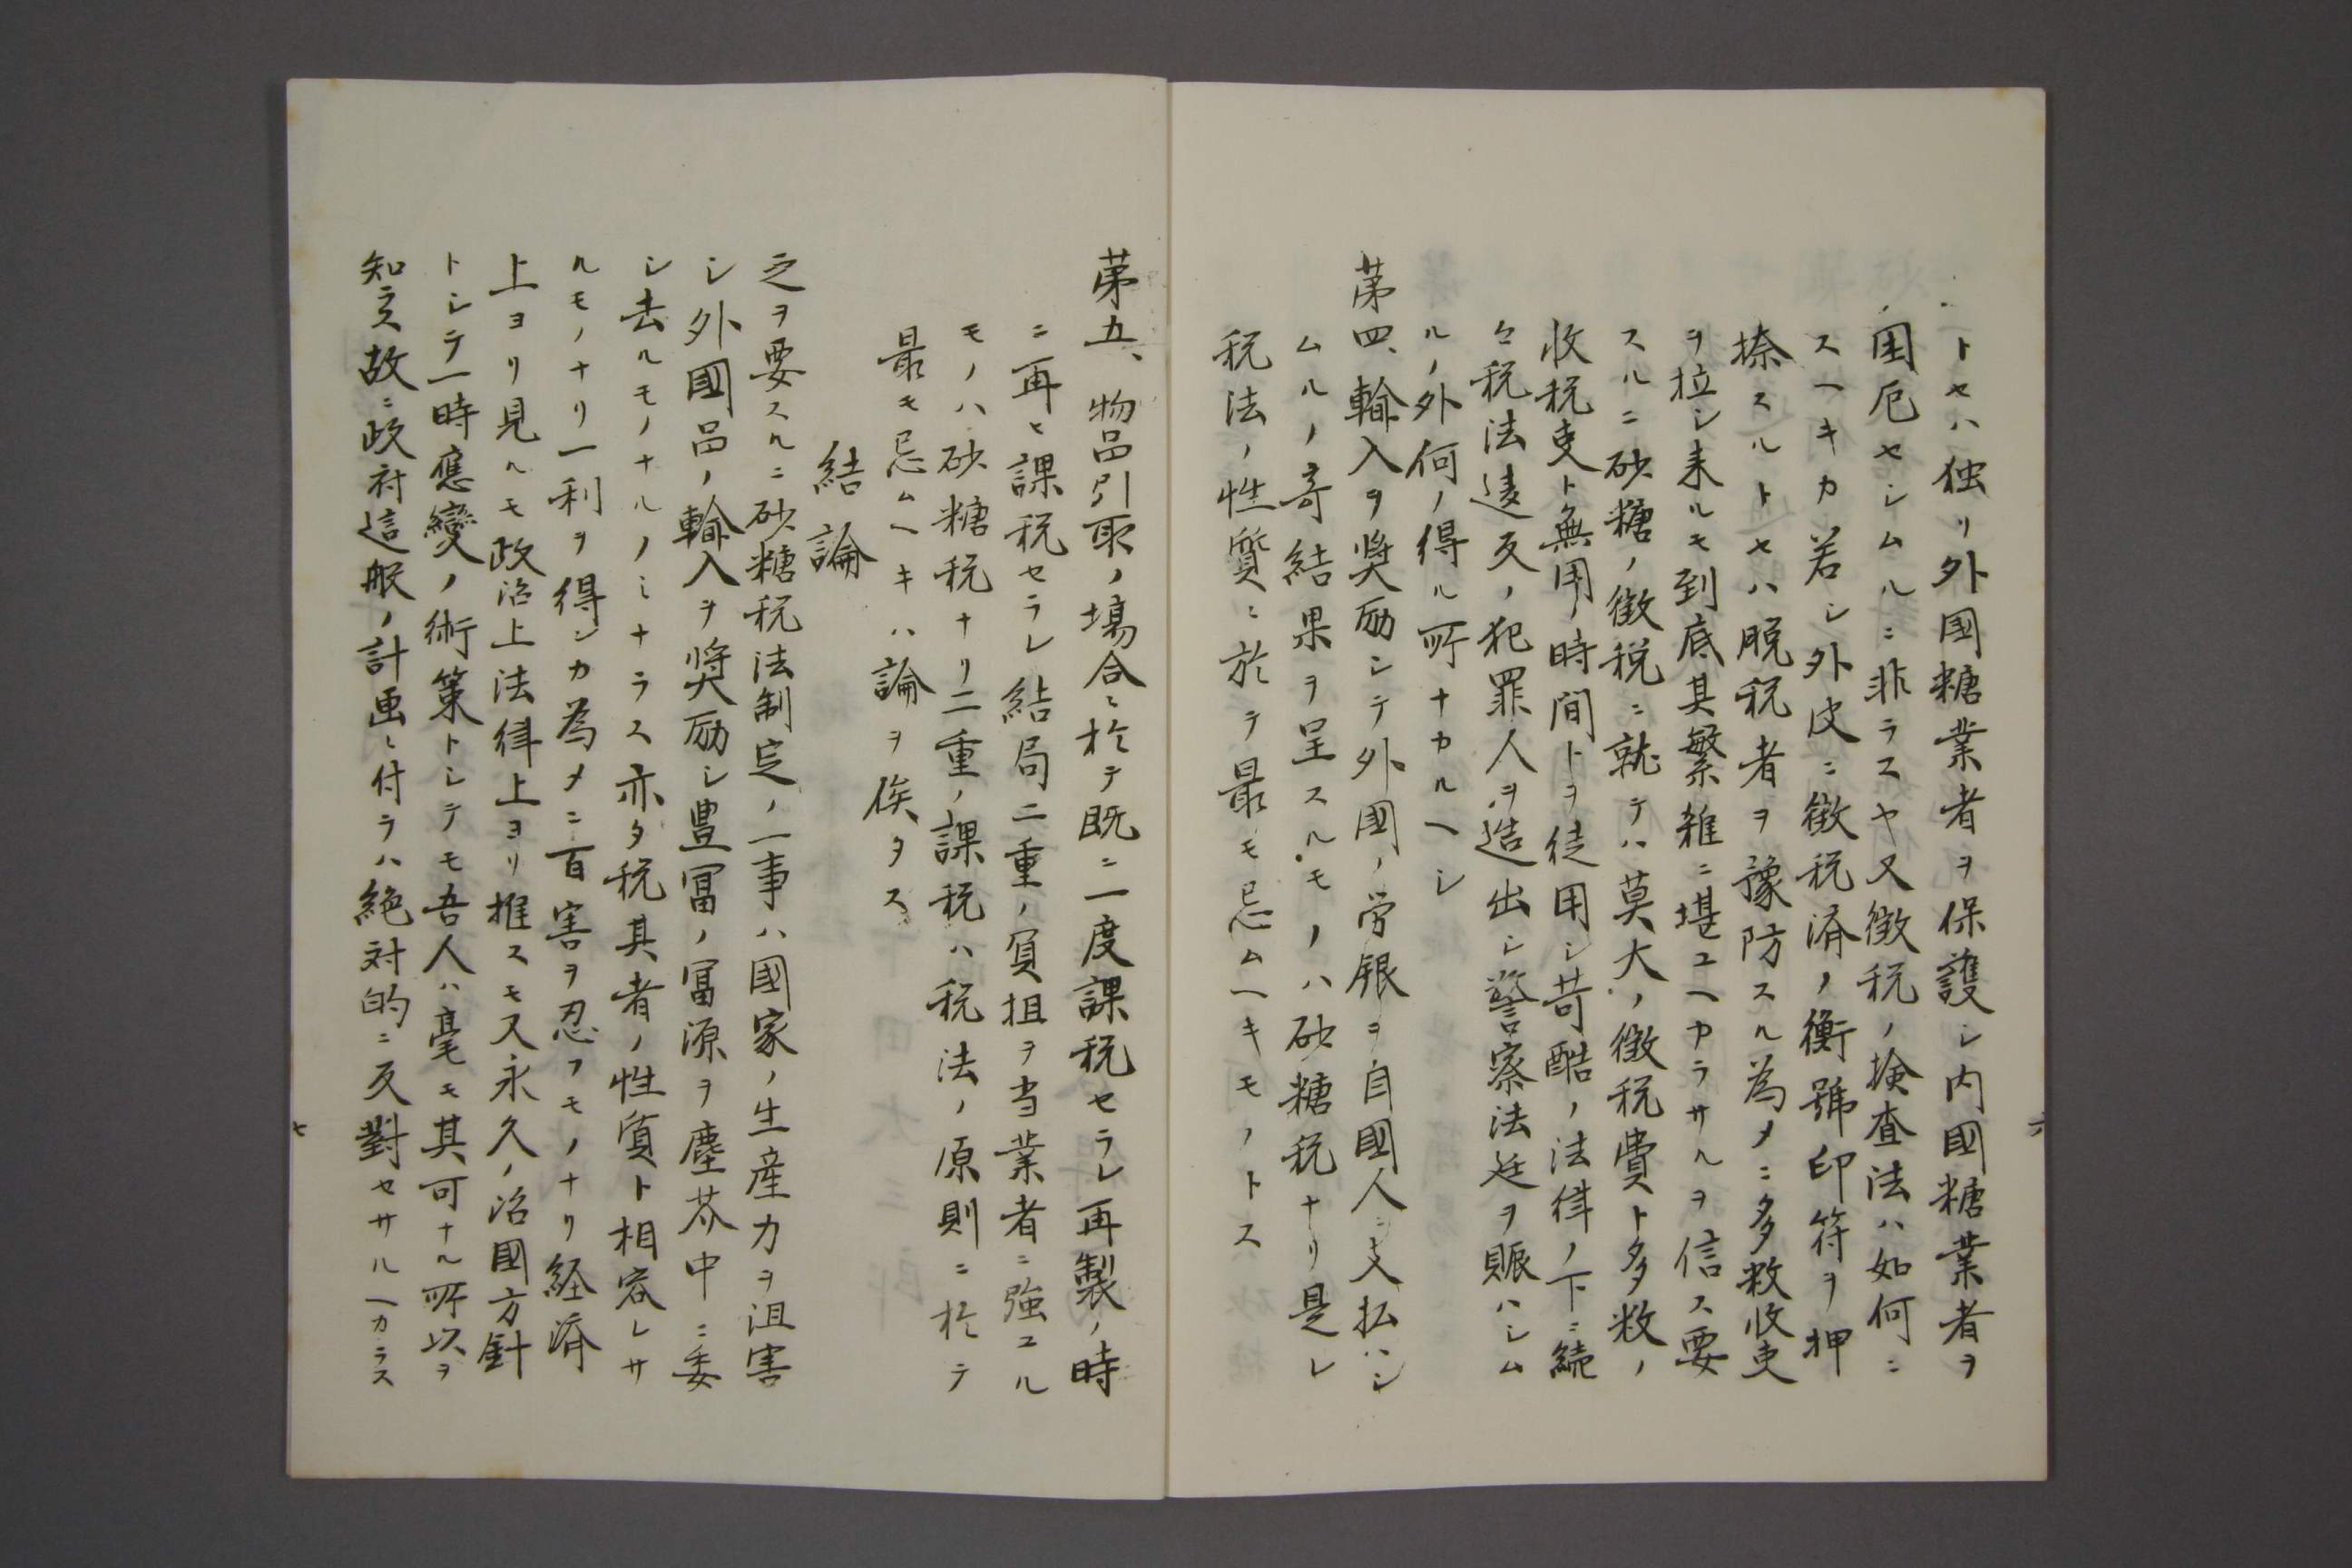 トセハ独リ外國糖業者ヲ保護シ内國糖業者ヲ
困厄セシムルニ非ラスヤ又徴税ノ検査法ハ如何ニ
スヘキカ若シ外皮ニ徴税済ノ衡號印符ヲ押
捺スルトセハ脱税者ヲ豫防スル為メニ多数收吏
ヲ拉シ来ルモ到底其繁雑ニ堪ユヘカラサルヲ信ス要
スルニ砂糖ノ徴税ニ就テハ莫大ノ徴税費ト多数ノ
收税吏ト無用ノ時間トヲ徒用シ苛酷ノ法律ノ下ニ続
々税法違反ノ犯罪人ヲ造出シ警察法廷ヲ賑ハシム
ルノ外何ノ得ル所ナカルヘシ
第四、輸入ヲ奨励シテ外國ノ労銀ヲ自國人ニ支払ハシ
ムルノ奇結果ヲ呈スルモノハ砂糖税ナリ是レ
税法ノ性質ニ於テ最モ忌ムヘキモノトス
六
第五、物品引取ノ場合ニ於テ既ニ一度課税セラレ再製ノ時
ニ再ヒ課税セラレ結局二重ノ負担ヲ当業者ニ強ユル
モノハ砂糖税ナリ二重ノ課税ハ税法ノ原則ニ於テ
最モ忌ムヘキハ論ヲ俟タス
結論
之ヲ要スルニ砂糖税法制定ノ一事ハ國家ノ生産力ヲ沮害
シ外國品ノ輸入ヲ奨励シ豊冨ノ冨源ヲ塵芥中ニ委
シ去ルモノナルノミナラス亦タ税其者ノ性質ト相容レサ
ルモノナリ一利ヲ得ンカ為メニ百害ヲ忍フモノナリ経済
上ヨリ見ルモ政治上法律上ヨリ推スモ又永久ノ治國方針
トシテ一時應變ノ術策トシテモ吾人ハ毫モ其可ナル所以ヲ
知ラス故ニ政府這般ノ計画ニ付ラハ絶対的ニ反對セサルヘカラス
七